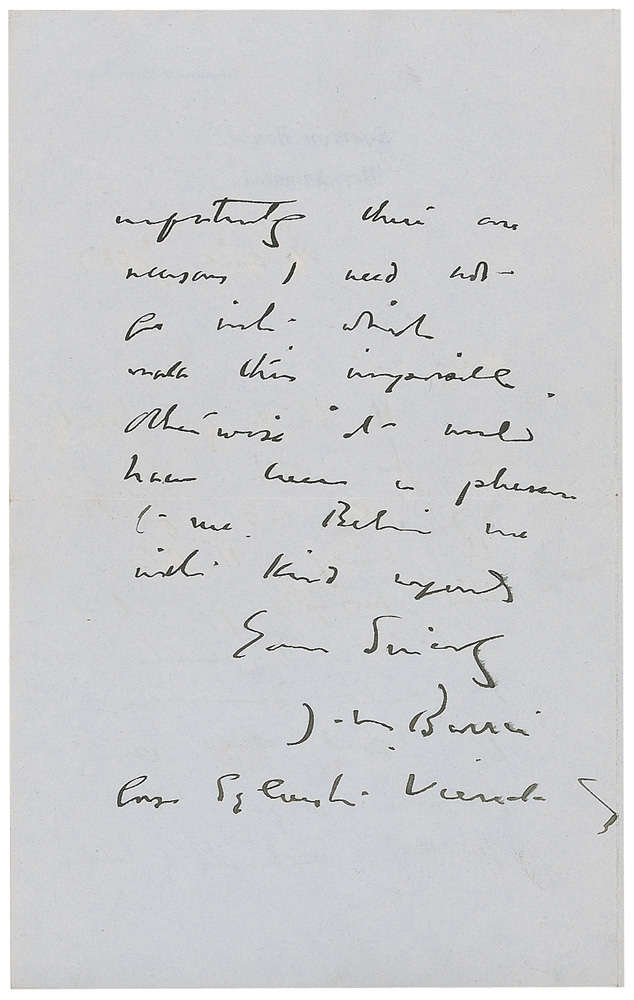 unfortunately there are
reasons I need not
go into which
make this impossible.
Otherwise it would
have been a pleasure
to me. Believe me
with kind regards
Yours Sincerely
J. M. Barrie
George Sylvester Viereck